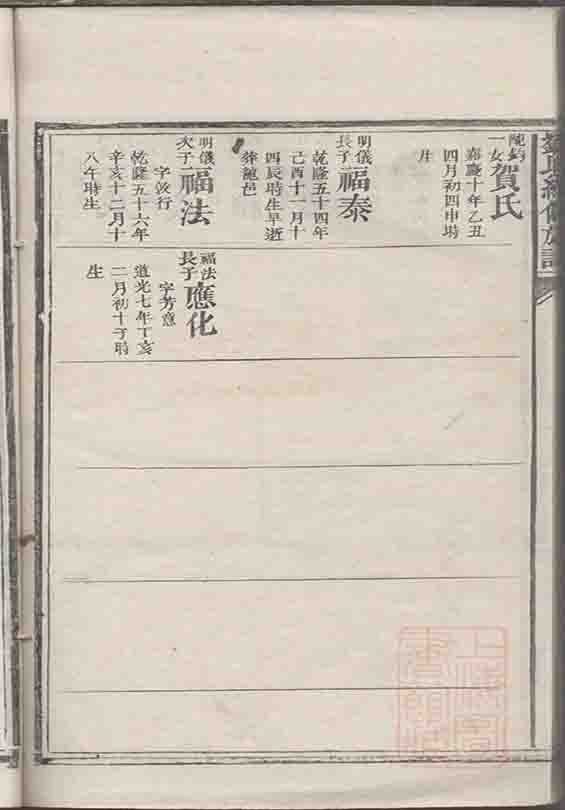 一女賀氏
嘉慶十年乙丑
四月初四申時
生
明儀
長子福泰
乾隆五十四年
己酉十一月十
四辰時生早逝
葬邑
明儀
次子福法
字行
乾隆五十六年
辛亥十二月十
八午時生
福法
長子應化
字芳意
道光七年丁亥
二月初十子時
生
氏續修族譜